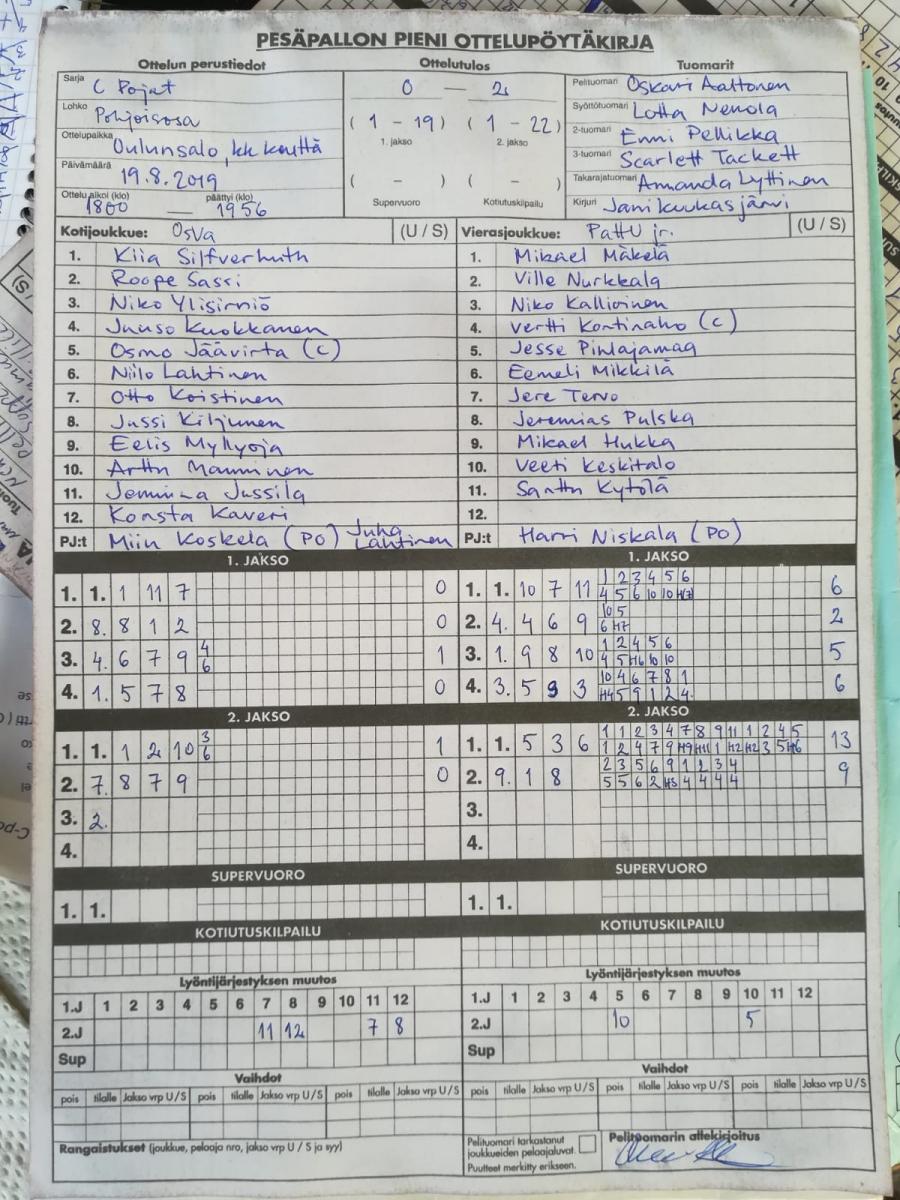 PESÄPALLON PIENI OTTELUPÖYTÄKIRJA
Ottelun perustiedot Ottelutulos Tuomarit
Sarja C Pojat
Lohko Pohjoisosa
Ottelupaikka Oulunsalo, kk kenttä
Päivämäärä 19.8.2019
Ottelu alkoi (klo) päättyi (klo)
1800 — 1956
0 — 2
( 1 - 19 ) ( 1 - 22 )
1. jakso 2. jakso
( - ) ( - )
Supervuoro Kotiutuskilpailu
Pelituomari Oskari Aaltonen
Syöttötuomari Lotta Nenola
2-tuomari Enni Pellikka
3-tuomari Scarlett Tackett
Takarajatuomari Amanda Lyttinen
Kirjuri Jani Kuukasjärvi
Kotijoukkue: OsVa (U / S)
1. Kiia Silfverhuth
2. Roope Sassi
3. Niko Ylisirniö
4. Juuso Kuokkanen
5. Osmo Jäävirta (C)
6. Niilo Lahtinen
7. Otto Koistinen
8. Jussi Kiljunen
9. Eelis Myllyoja
10. Arttu Manninen
11. Jemina Jussila
12. Konsta Kaveri
PJ:t Miin Koskela (PO) Juha Lahtinen
Vierasjoukkue: PattU jr. (U / S)
1. Mikael Mäkelä
2. Ville Nurkkala
3. Niko Kallioinen
4. Vertti Kontinaho (C)
5. Jesse Pihlajamaa
6. Eemeli Mikkilä
7. Jere Tervo
8. Jeremias Pulska
9. Mikael Hukka
10. Veeti Keskitalo
11. Santtu Kytölä
12.
PJ:t Harri Niskala (PO)
1. JAKSO
1. 1. 1 11 7 0
2. 8. 8 1 2 0
3. 4. 6 7 9 4 6 1
4. 1. 5 7 8 0
1. JAKSO
1 2 3 4 5 6
1. 1. 10 7 11 4 5 6 10 10 H7 6
10 5
2. 4. 4 6 9 6 H7 2
1 2 4 5 6
3. 1. 9 8 10 4 5 H6 10 10 5
10 4 6 7 8 1
4. 3. 5 9 3 H4 5 9 1 2 4 6
2. JAKSO
1. 1. 1 2 10 3 6 1
2. 7. 8 7 9 0
3. 2.
4.
2. JAKSO
1 1 2 3 4 7 8 9 11 1 2 4 5
1. 1. 5 3 6 1 2 4 7 9 H9 H11 1 H2 H2 3 5 H6 13
2 3 5 6 9 1 2 3 4
2. 9. 1 8 5 5 6 2 H3 4 4 4 4 9
3.
4.
SUPERVUORO SUPERVUORO
1. 1. 1. 1.
KOTIUTUSKILPAILU KOTIUTUSKILPAILU
Lyöntijärjestyksen muutos
1.J 1 2 3 4 5 6 7 8 9 10 11 12
2.J 11 12 7 8
Sup
Lyöntijärjestyksen muutos
1.J 1 2 3 4 5 6 7 8 9 10 11 12
2.J 10 5
Sup
Vaihdot Vaihdot
pois tilalle Jakso vrp U / S pois tilalle Jakso vrp U / S pois tilalle Jakso vrp U / S
pois tilalle Jakso vrp U / S pois tilalle Jakso vrp U / S pois tilalle Jakso vrp U / S
Rangaistukset (joukkue, pelaaja nro, jakso vrp U / S ja syy)
Pelituomari tarkastanut
joukkueiden pelaajaluvat.
Puutteet merkitty erikseen.
Pelituomarin allekirjoitus